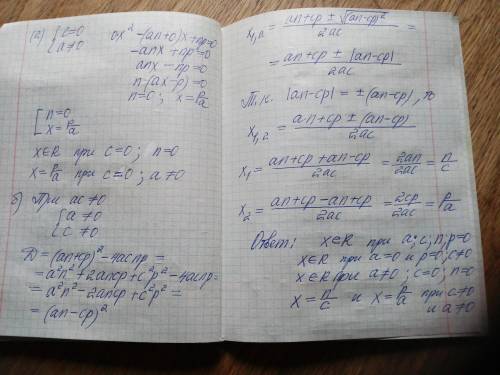 (а) { c=0
a≠0
0x² -(an+0)x+np=0
-anx + np=0
anx - np=0
n(ax-p)=0
n=0; x=p/a
[ n=0
x=p/a
x∈R при c=0; n=0
x=p/a при c=0; a≠0
б) При ac≠0
{ a≠0
c≠0
D=(an+cp)²-4acnp=
=a²n²+2ancp+c²p²-4acnp=
=a²n²-2ancp+c²p²=
=(an-cp)²
x₁,₂= (an+cp ± √(an-cp)²)/2ac =
= (an+cp ± |an-cp|)/2ac
Т.к. |an-cp| = ±(an-cp), то
x₁,₂= (an+cp ± (an-cp))/2ac
x₁= (an+cp+an-cp)/2ac = 2an/2ac = n/c
x₂= (an+cp-an+cp)/2ac = 2cp/2ac = p/a
Ответ: x∈R при a;c;n;p=0
x∈R при a=0 и p=0; c≠0
x∈R при a≠0; c=0; n=0
x=n/c и x=p/a при c≠0
и a≠0